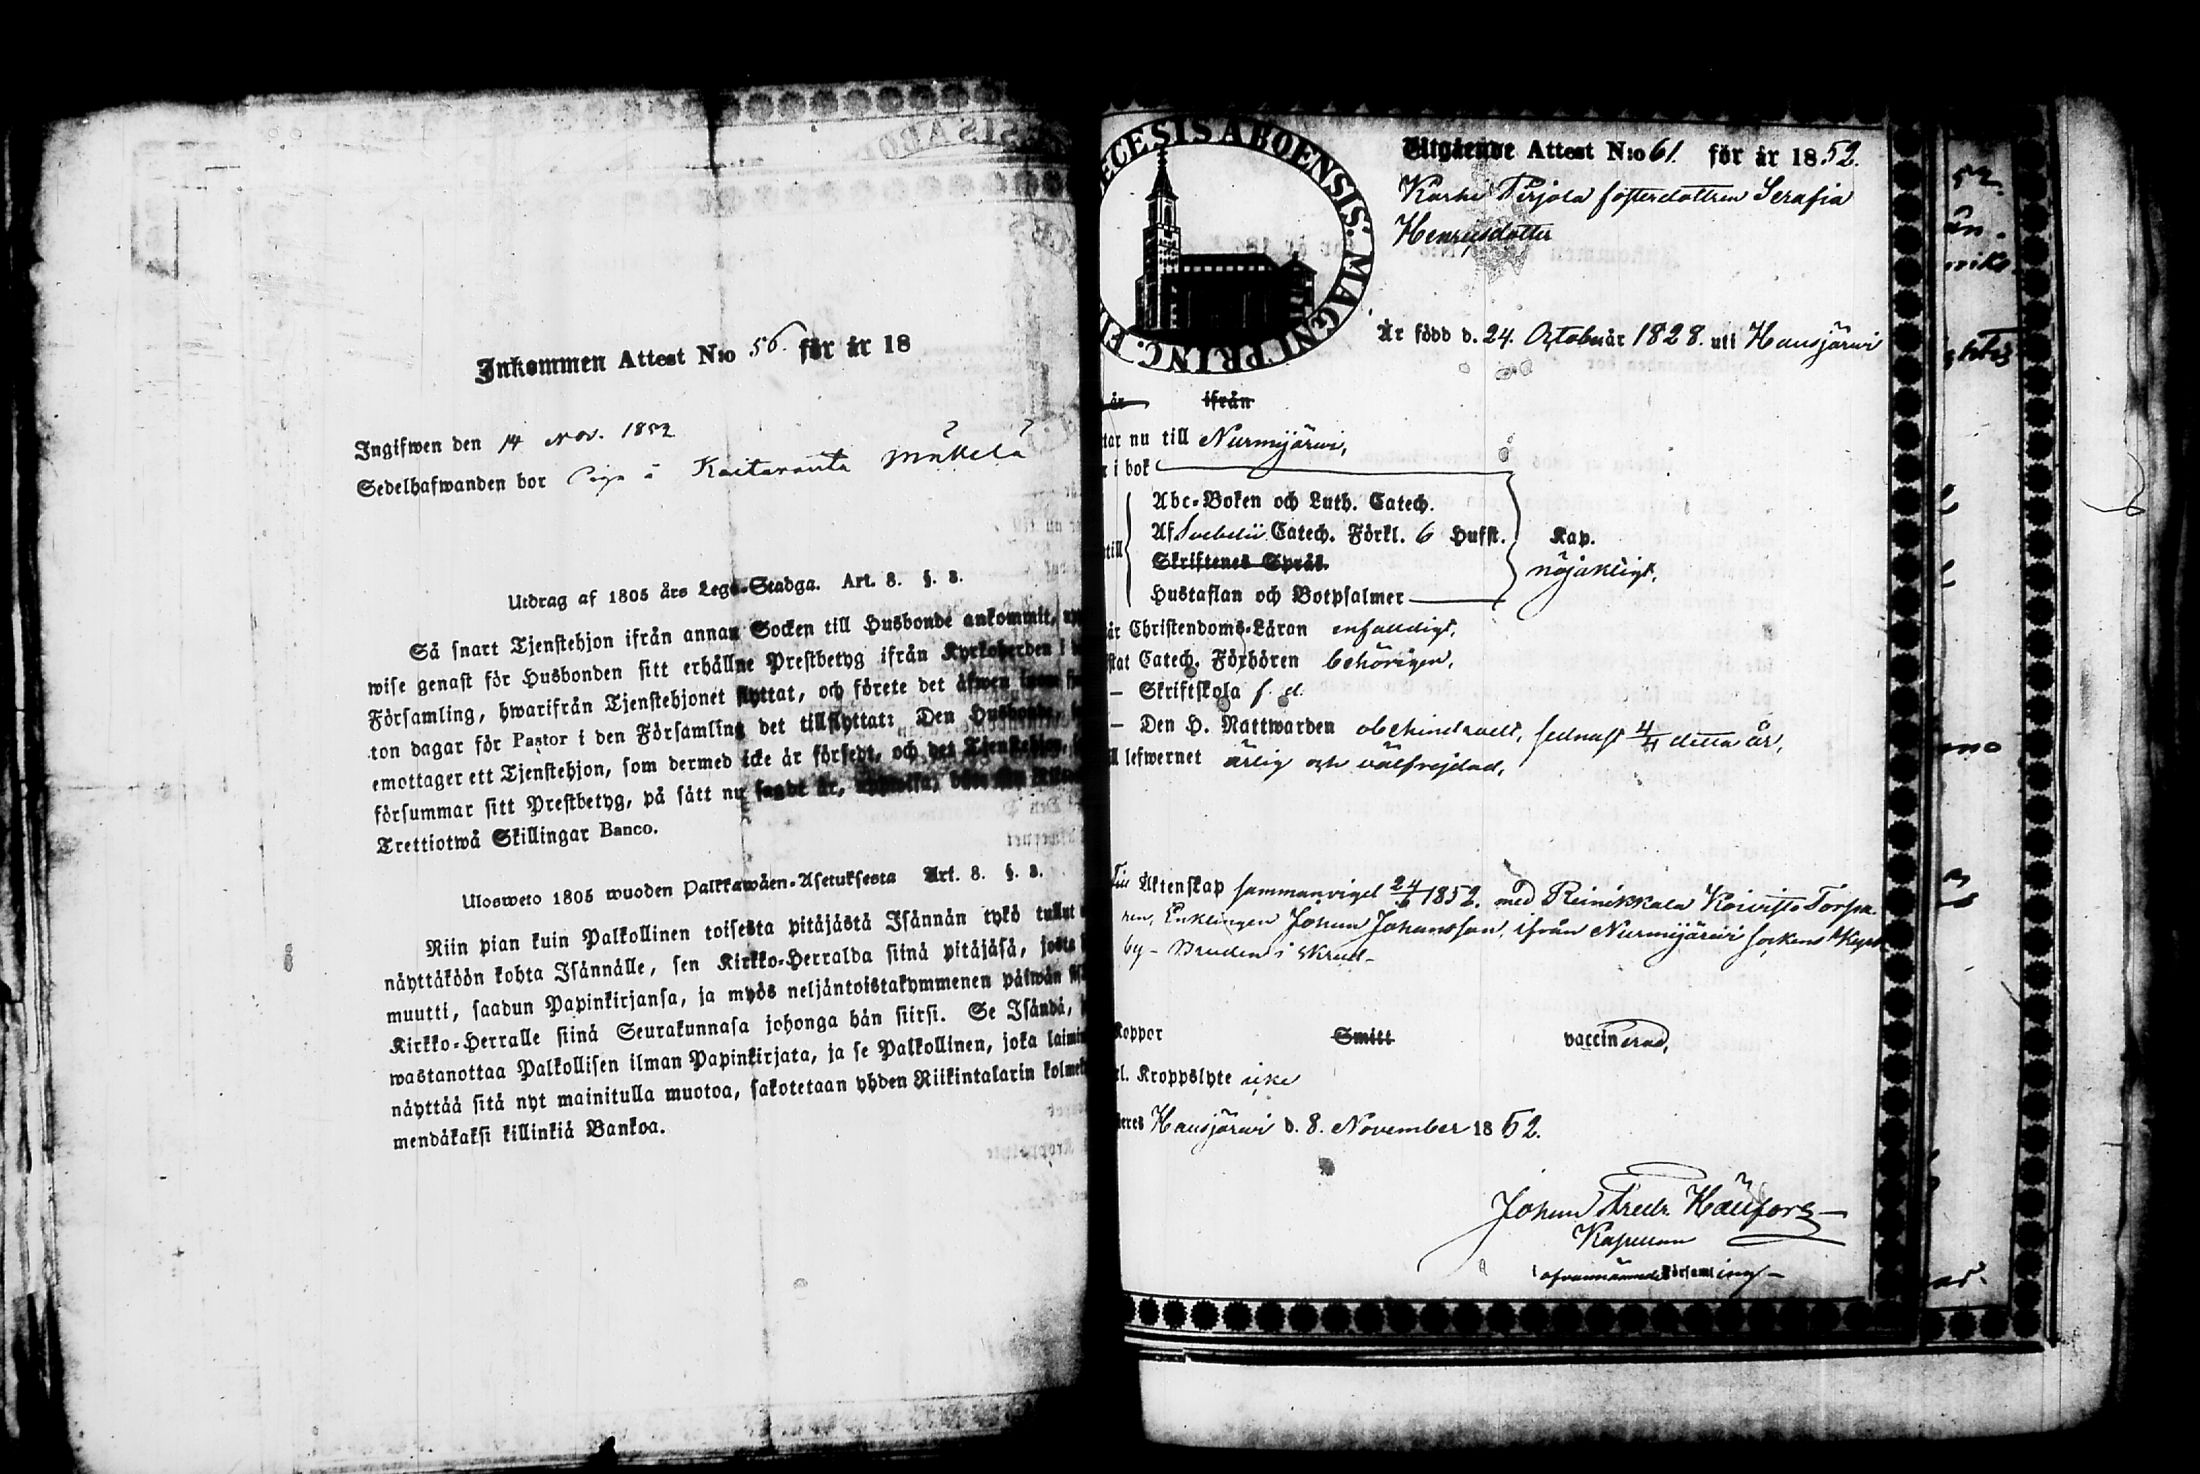 Inkommen Attest N:o 56. för år 18
Ingifwen den 14 Nov. 1852
Sedelhafwanden bor Piga å Kaitaranta Mäkelä
Utdrag af 1805 års Lego-Stadga. Art. 8. §. 3.
Så snart Tjenstehjon ifrån annan Socken till Husbonde ankommit,
wise genast för Husbonden sitt erhållne Prestbetyg ifrån Kyrkoherden i
Församling, hwarifrån Tjenstehjonet flyttat, och förete det äfwen
ton dagar för Pastor i den Församling det tillflyttat: Den Husbonde,
emottager ett Tjenstehjon, som dermed icke är försedt, och det Tjenstehjon,
försummar sitt Prestbetyg, på sätt nu sagdt är,
Trettiotwå Skillingar Banco.
Ulosweto 1805 wuoden Palkkawäen-Asetuksesta Art. 8. §. 3.
Niin pian kuin Palkollinen toisesta pitäjästä Isännän tykö tullut
näyttäköön kohta Isännälle, sen Kirkko-Herralda siinä pitäjäsä, josta
muutti, saadun Papinkirjansa, ja myös neljäntoistakymmenen päiwän
Kirkko-Herralle siinä Seurakunnasa johonga hän siirsi. Se Isändä,
wastanottaa Palkollisen ilman Papinkirjata, ja se Palkollinen, joka
näyttää sitä nyt mainitulla muotoa, sakotetaan yhden Riikintalarin
mendäkaksi killinkiä Bankoa.
ECESIS ABOENSIS. MAGNI PRINC.
Utgående Attest N:o 61. för år 1852.
Karhi Pirjola fosterdottren Serafia
Henricsdotter
Är född d. 24. Octobuär 1828. uti Hausjärwi
år ifrån
tar nu till Nurmijärwi,
r i bok
Abc-Boken och Luth. Catech.
Af Svebelii Catech. Förkl. 6 Hufst. Kap.
till Skriftenes Språk nöjaktigt,
Hustaflan och Botpsalmer
är Christendoms-Läran enfaldigt,
stat Catech. Förhören behörigen,
— Skriftskola s. d.
— Den H. Nattwarden obehindradt, sednast 4/4 detta år,
ll lefwernet ärlig och välfrejdad,
Till Äktenskap sammanvigd 24/6 1852. med Reinikkala Koivisto Torpa-
ren, Enklingen Johan Johansson, ifrån Nurmijärwi sockens
by – Bruden i skrud –
Koppor Smitt vaccinerad,
el. Kroppslyte icke
eres Hausjärwi d. 8. November 1852.
Johan Fredr.
Kapellan
i ofvannämnde Församling –